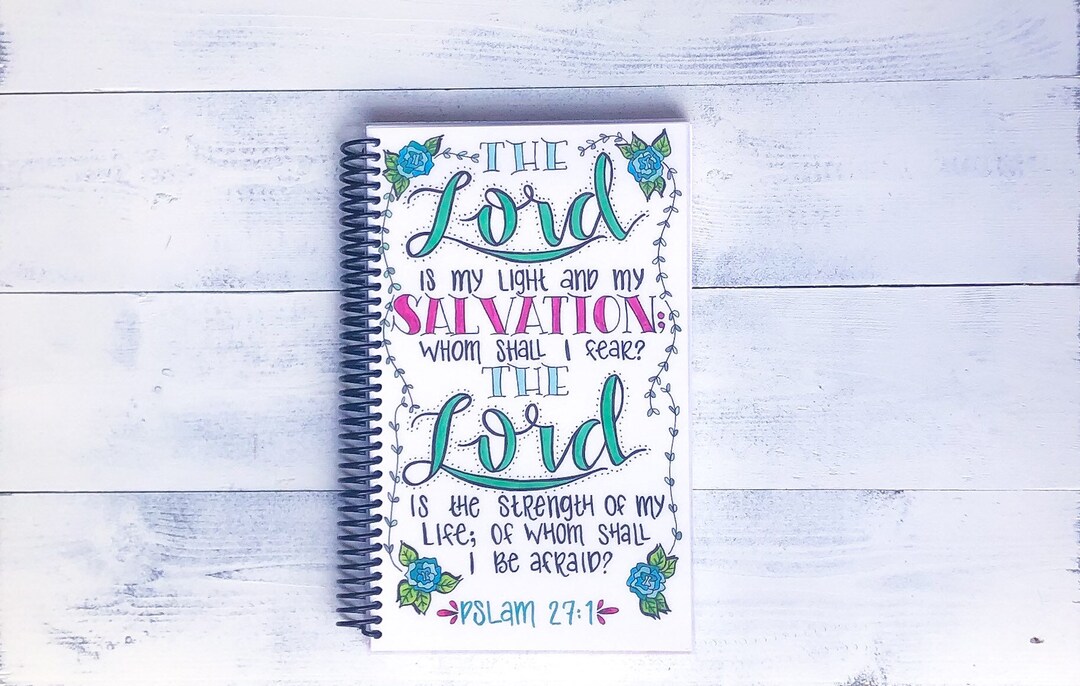 THE
Lord
is my Light and my
SALVATION;
WHOM SHALL I FEAR?
THE
Lord
is the Strength of my
Life; of whom shall
I Be afraid?
PSLAM 27:1